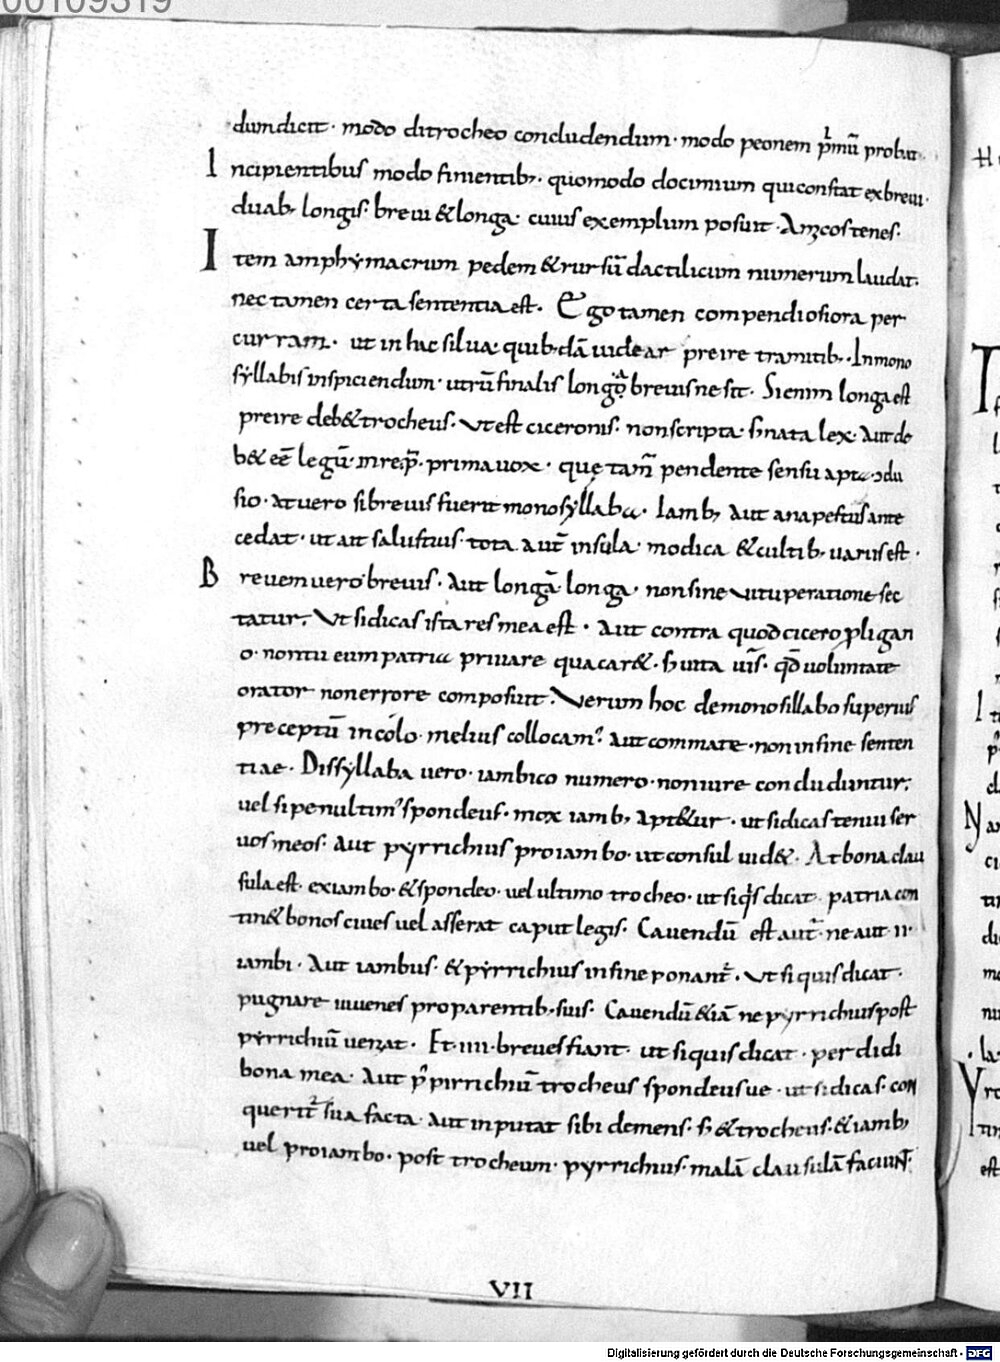 00109319
dum dicit · modo ditrocheo concludendum · modo peonem p̄mū probat ·
Incipientibus modo finientib; · quomodo docimium qui constat ex breui ·
duab; longis · breui & longa · cuius exemplum posuit · Amicos tenes ·
Item amphymacrum pedem & rursū dactilicum numerum laudat ·
nec tamen certa sententia est · Ego tamen compendiosiora per
curram · ut in hac silua quib;dā uidear preire tramitib; · In mono
syllabis inspiciendum · utrū finalis longa breuisne sit · Si enim longa est
preire deb& trocheus · Ut est ciceronis · non scripta · s; nata lex · Aut de
b& eē legū · in rep̄ · prima uox · quę tam̄ pendente sensu apta ɔclu
sio · At uero si breuis fuerit monosyllaba · Iamb; aut anapestus ante
cedat · ut ait salustius · tota aut̄ insula · modica & cultib; uariis est ·
Breuem uero breuis · aut longā longa · non sine uituperatione sec
tatur · Ut si dicas ista res mea est · Aut contra quod cicero p̱ ligari
o · non tu eum patria priuare qua car& · s; uita uis · qd̄ uoluntate
orator non errore composuit · Verum hoc de monosillabo superius
preceptū in colo · melius collocam? aut commate · non in fine senten
tiae · Dissyllaba uero · iambico numero · non iure concluduntur ·
uel si penultim? spondeus · mox iamb; apt&ur · ut si dicas tenui ser
uos meos · Aut pyrrichius proiambo · ut consul uid& · At bona clau
sula est · ex iambo · & spondeo · uel ultimo trocheo · ut siq̇s dicat · patria con
tin& bonos ciues uel asserat caput legis · Cauendū est aut̄ · ne aut II ·
iambi · Aut iambus · & pyrrichius in fine ponant̄ · Ut si quis dicat ·
pugnare iuuenes pro parentib; suis · Cauendū & iā ne pyrrichius post
pyrrichiū ueniat · Et · IIII · breues fiant · ut si quis dicat · perdidi
bona mea · Aut p̄ pirrichiū trocheus spondeusue · ut si dicas · con
querit̄ sua facta · Aut inputat sibi demens · s; & trocheus · & iamb;
uel proiambo · post trocheum · pyrrichius · malā clausulā faciuNT̄ ·
VII
Digitalisierung gefördert durch die Deutsche Forschungsgemeinschaft - DFG